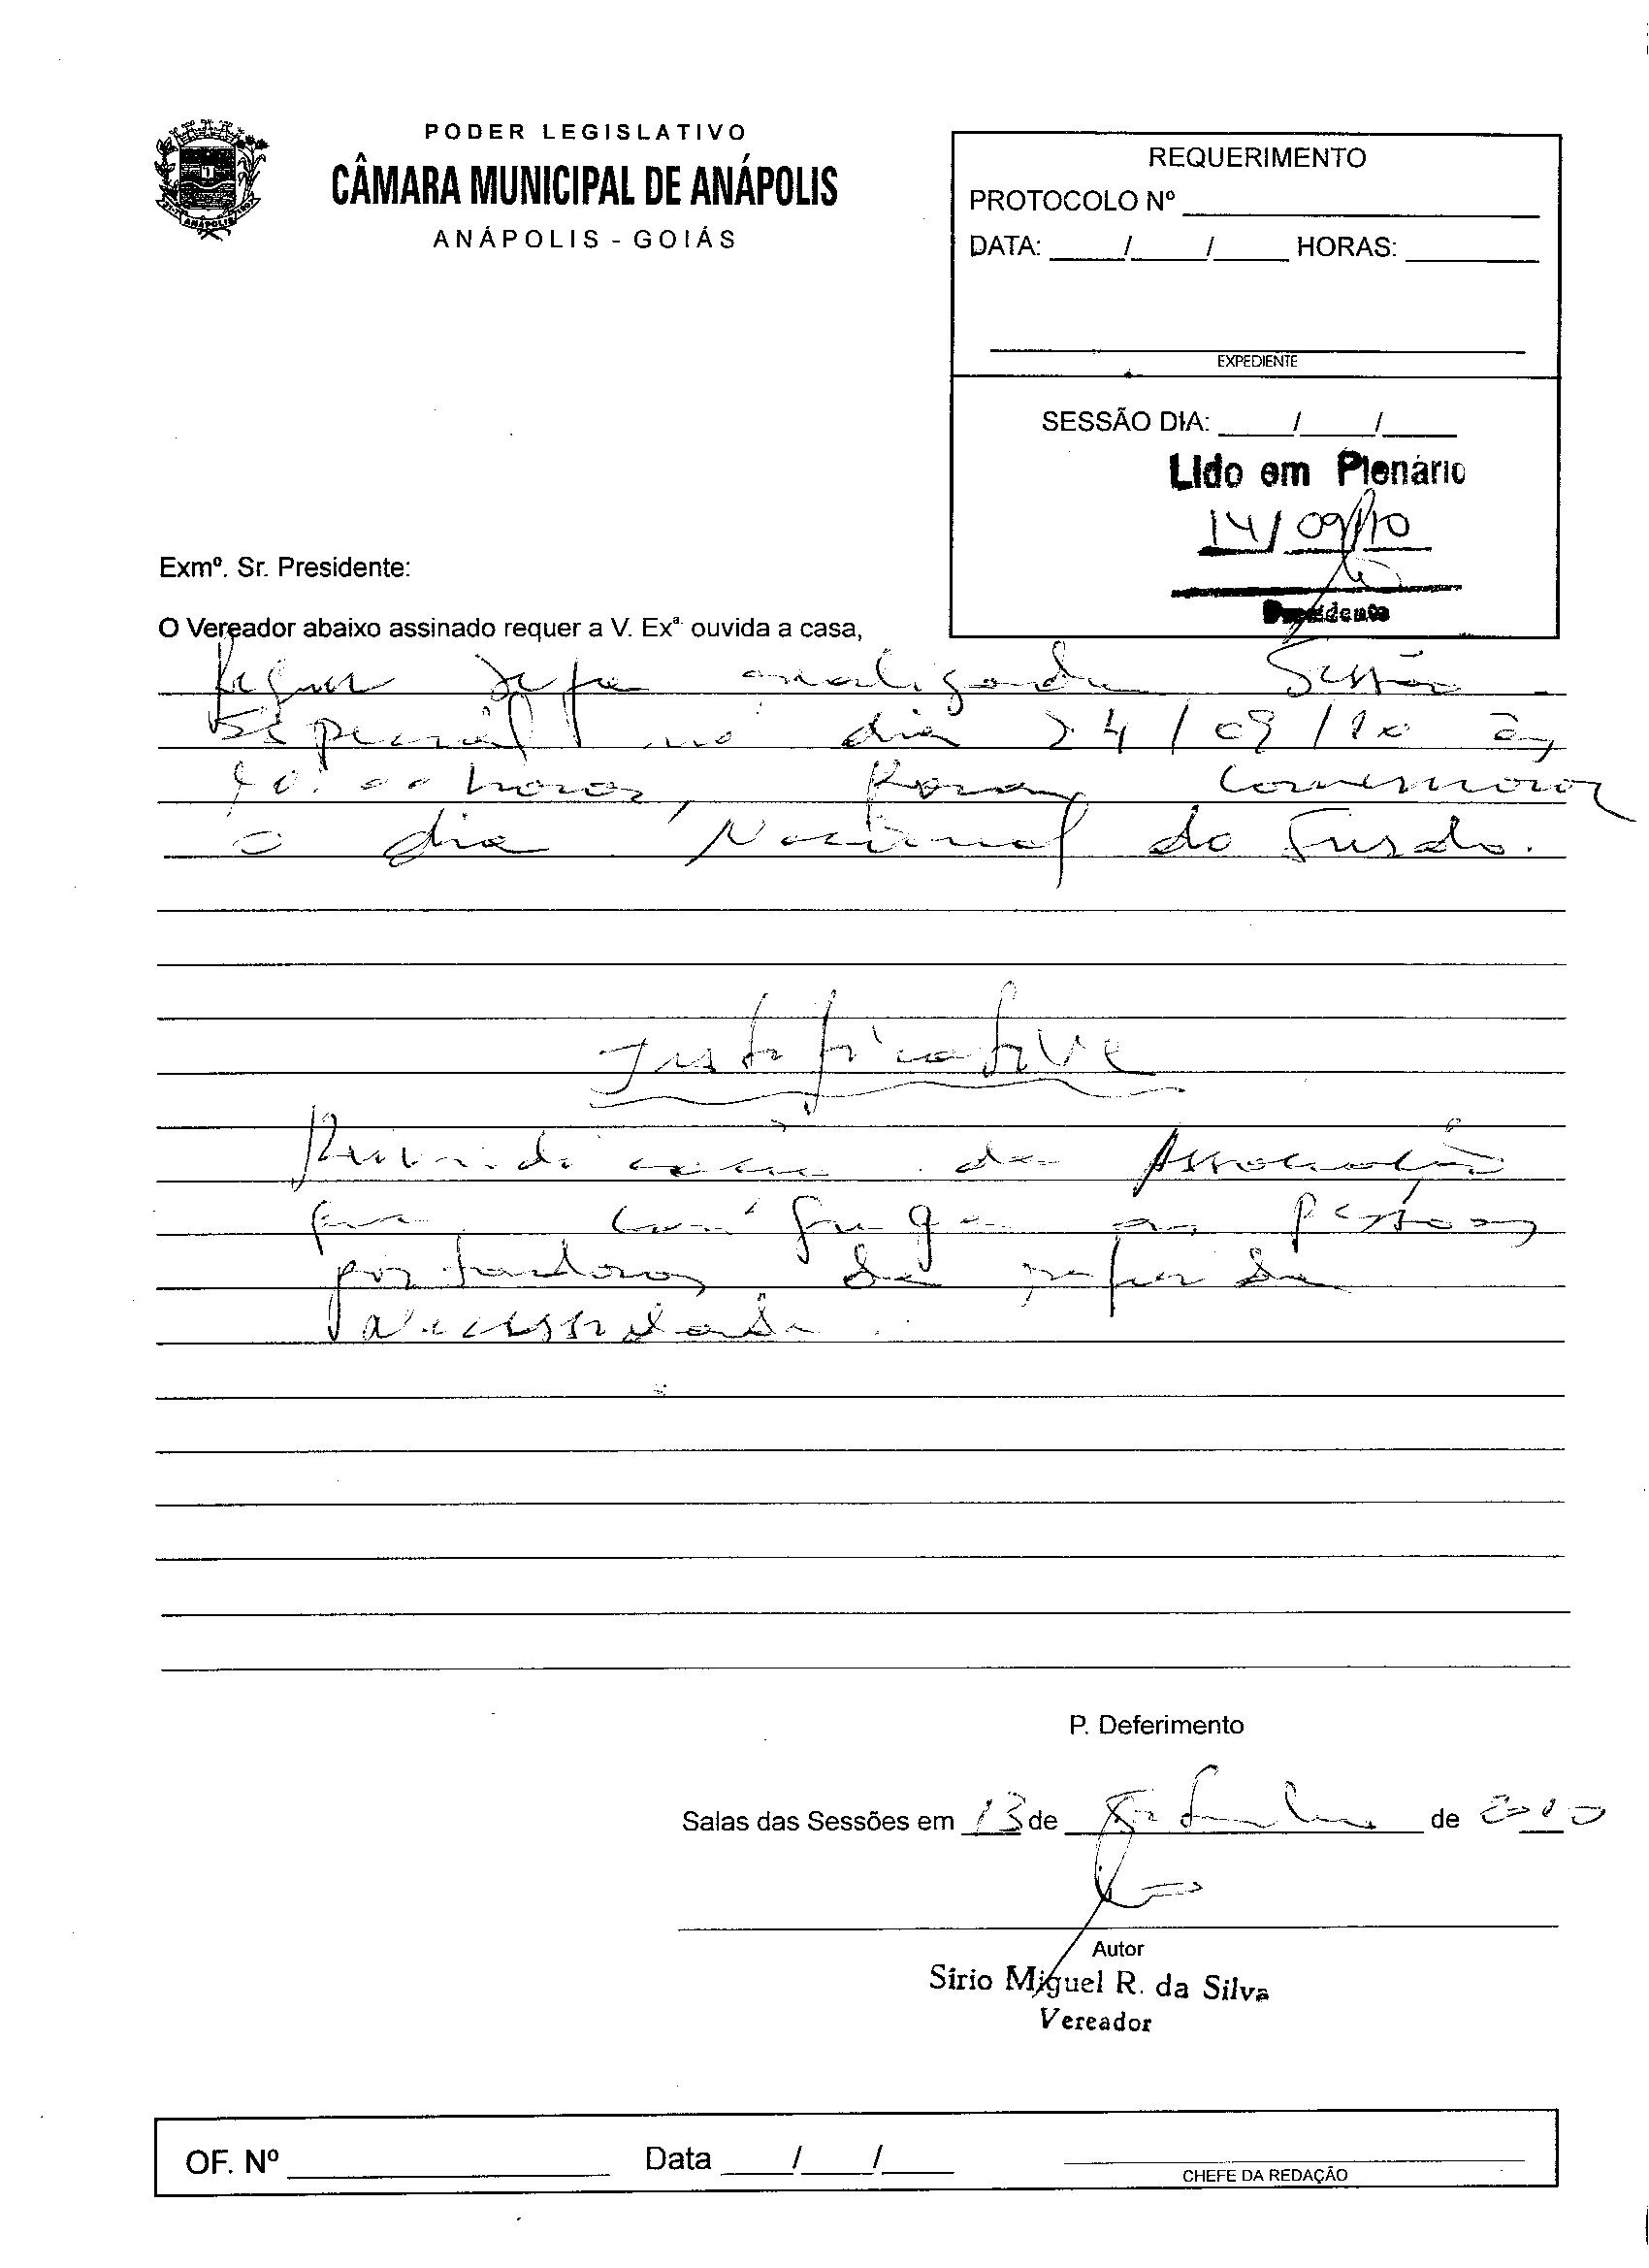 PODER LEGISLATIVO
CÂMARA MUNICIPAL DE ANÁPOLIS
ANÁPOLIS - GOIÁS
REQUERIMENTO
PROTOCOLO Nº
DATA: / / HORAS:
EXPEDIENTE
SESSÃO DIA: / /
Lido em Plenário
14/09/10
Presidente
Exmº. Sr. Presidente:
O Vereador abaixo assinado requer a V. Exª. ouvida a casa,
Requer seja Sessão
Especial no dia 24/09/10 às
10:00 horas, Para Comemorar
o dia Nacional do Surdo.
Justificativa
Reivindicação da Associação
que as pessoas
portadoras de
necessidade.
P. Deferimento
Salas das Sessões em 13 de Setembro de 2010
Autor
Sírio Miguel R. da Silva
Vereador
OF. Nº Data / /
CHEFE DA REDAÇÃO